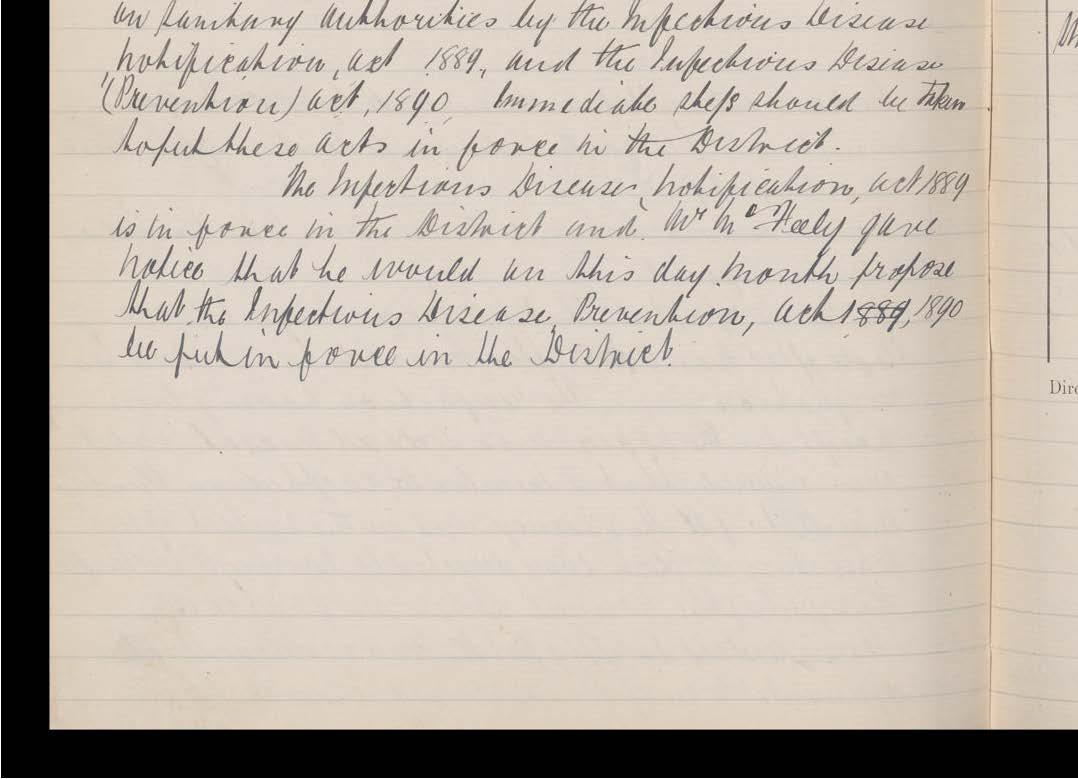 on Sanitary Authorities by the Infectious Disease
(Notification) act 1889, and the Infectious Disease
(Prevention) act, 1890, Immediate steps should be taken
to put these acts in force in the District.
The Infectious Disease (Notification) act 1889
is in force in the District and Mr McFeely gave
notice that he would on this day month propose
that the Infectious Disease (Prevention) act 1889, 1890
be put in force in the District.
Dire